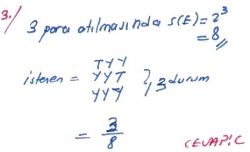 3./ 3 para atılmasında s(E)=2³
=8
TYY
istenen = YYT } 3 durum
YYY
= 3/8
CEVAP/C